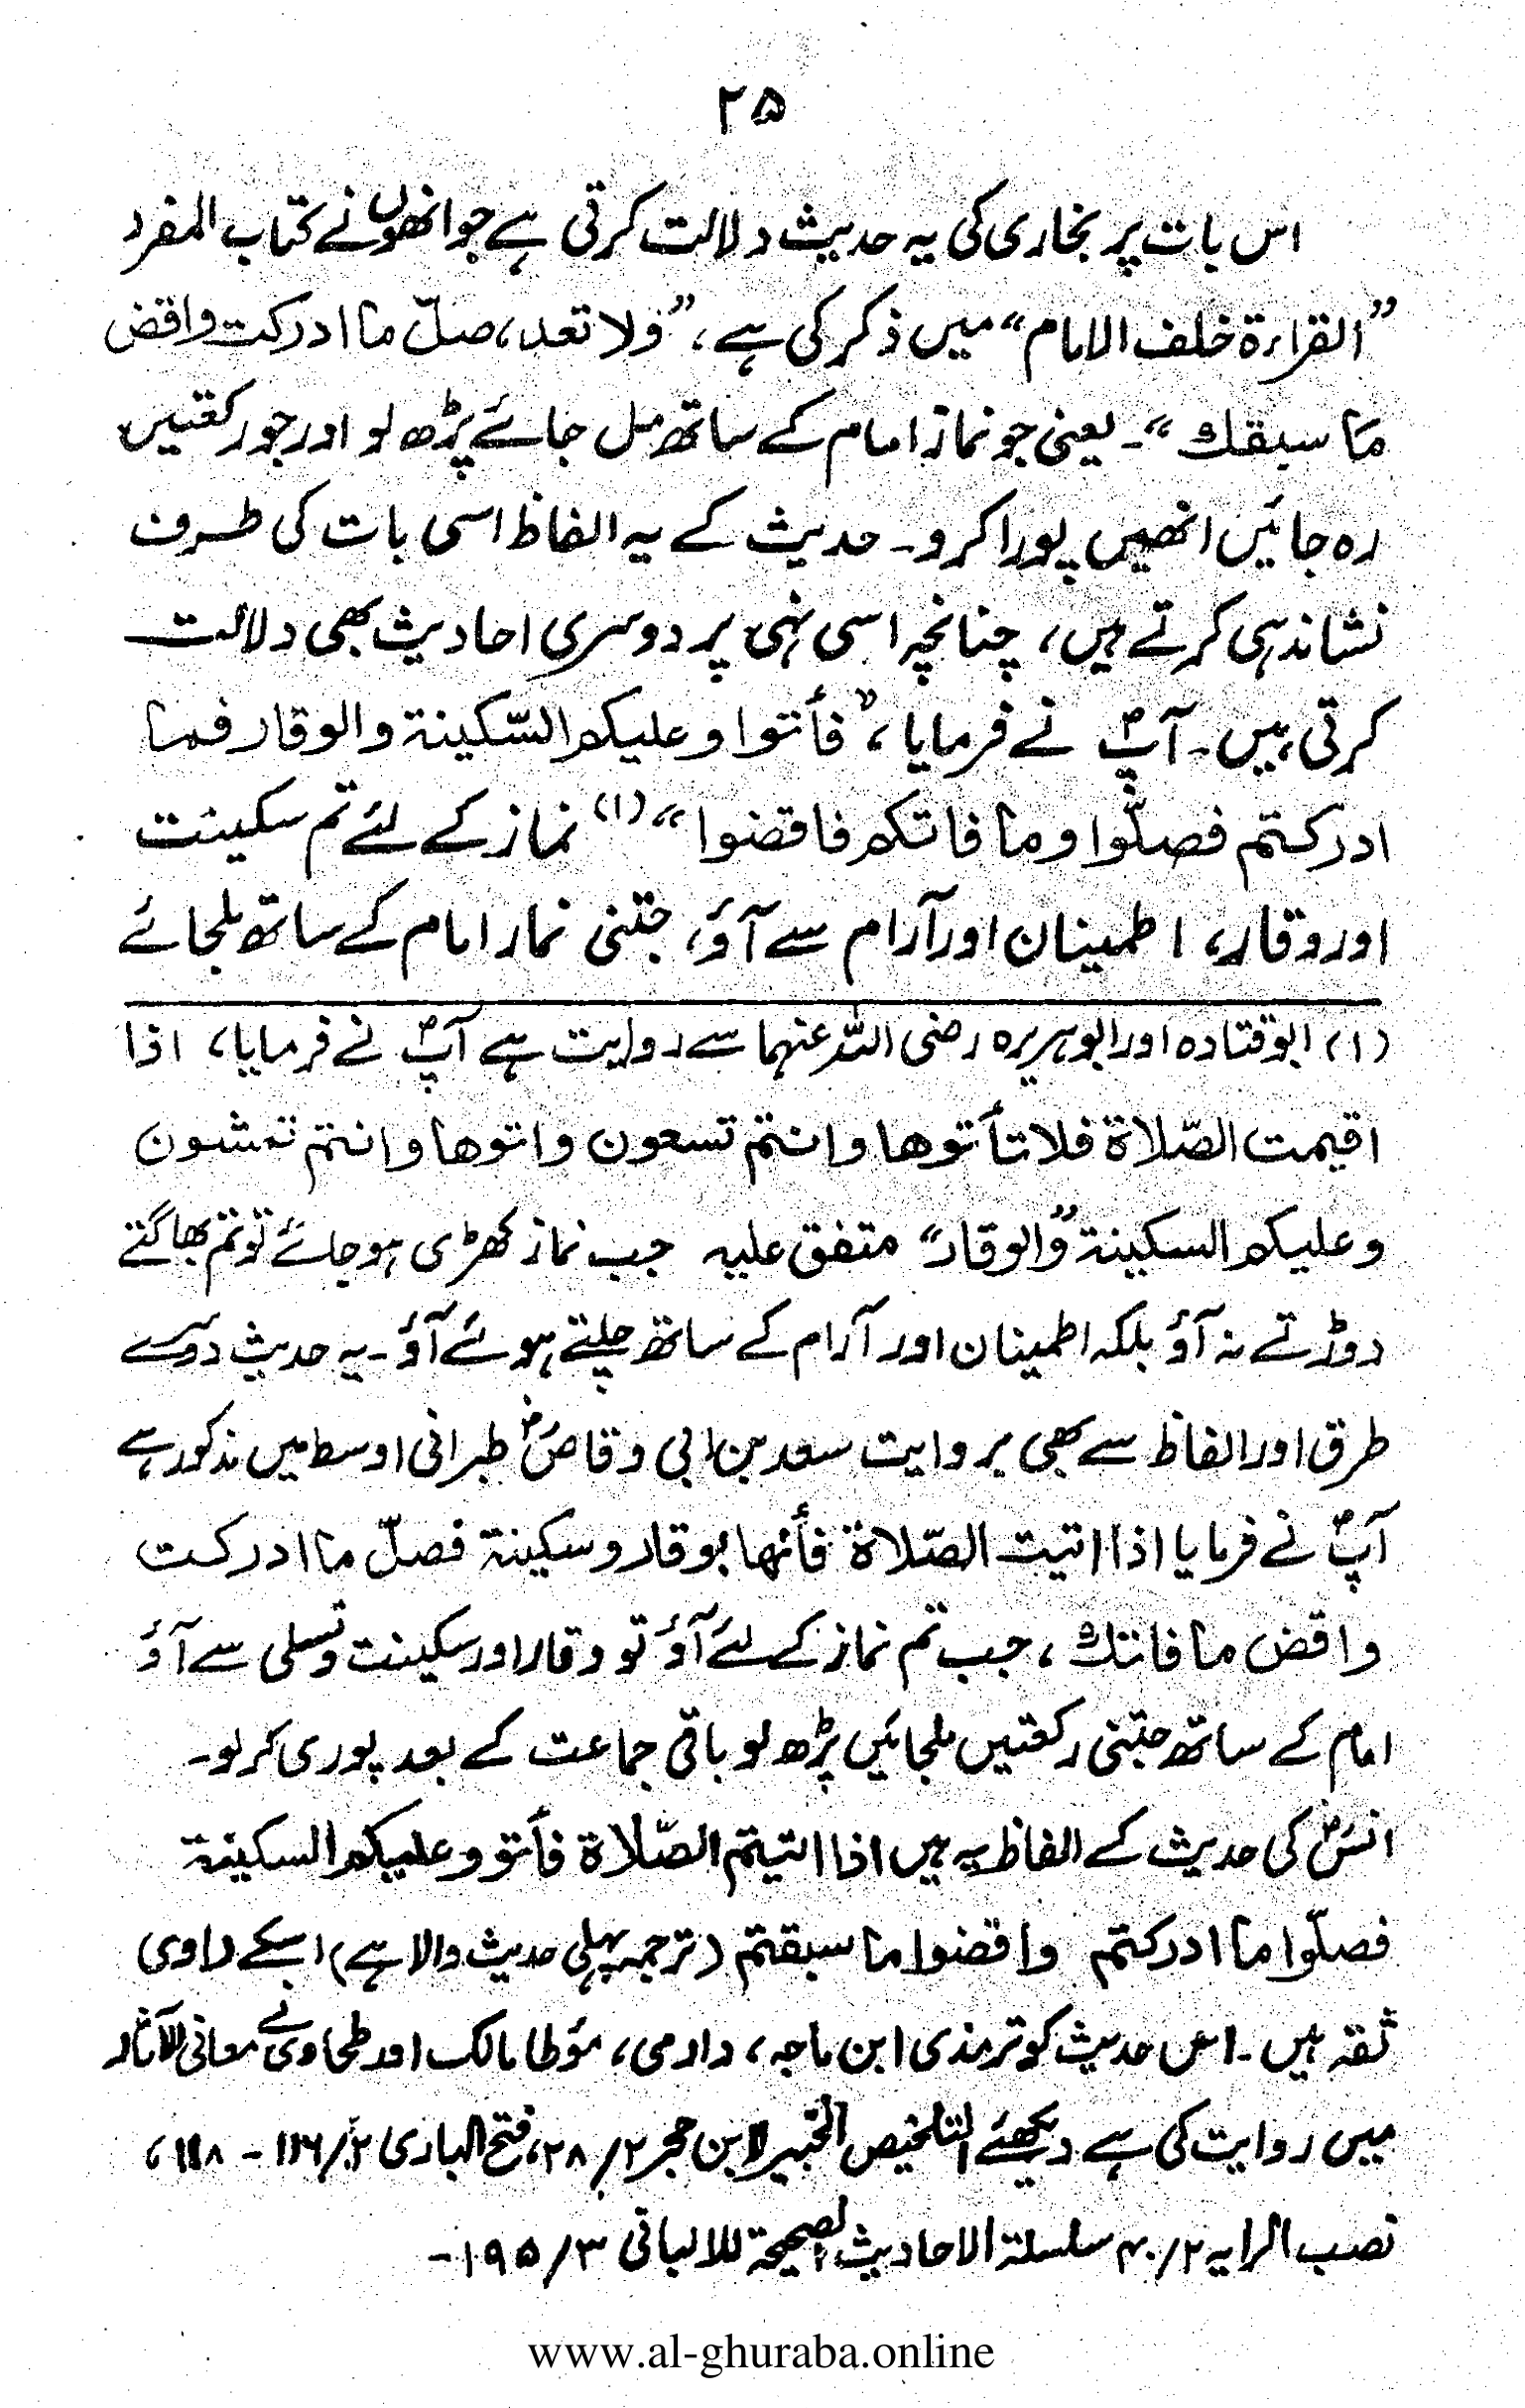 ۲۵
اس بات پر بخاری کی یہ حدیث دلالت کرتی ہے جو انھوں نے کتاب المفرد
”القراءة خلف الامام“ میں ذکر کی ہے، ”ولا تعد، صلّ ما ادركت واقض
ما سبقك“۔ یعنی جو نماز امام کے ساتھ مل جائے پڑھ لو اور جو رکعتیں
رہ جائیں انھیں پورا کرو۔ حدیث کے یہ الفاظ اسی بات کی طرف
نشاندہی کرتے ہیں، چنانچہ اسی نہی پر دوسری احادیث بھی دلالت
کرتی ہیں۔ آپؐ نے فرمایا، ”فأتوا وعليكم السّكينة والوقار فما
ادركتم فصلّوا وما فاتكم فاقضوا“ (۱) نماز کے لئے تم سکینت
اور وقار، اطمینان اور آرام سے آؤ، جتنی نماز امام کے ساتھ ملجائے
(۱) ابو قتادہ اور ابو ہریرہ رضی اللہ عنہما سے روایت ہے آپؐ نے فرمایا، اذا
اقيمت الصّلاة فلا تأتوها وانتم تسعون واتوها وانتم تمشون
وعليكم السكينة ”والوقار“ متفق علیہ جب نماز کھڑی ہو جائے تو تم بھاگتے
دوڑتے نہ آؤ بلکہ اطمینان اور آرام کے ساتھ چلتے ہوئے آؤ۔ یہ حدیث دوسرے
طرق اور الفاظ سے بھی بروایت سعد بن ابی وقاصؓ طبرانی اوسط میں مذکور ہے
آپؐ نے فرمایا اذا اتيت الصّلاة فأتها بوقار وسكينة فصلّ ما ادركت
واقض ما فاتك، جب تم نماز کے لئے آؤ تو وقار اور سکینت و تسلی سے آؤ
امام کے ساتھ جتنی رکعتیں ملجائیں پڑھ لو باقی جماعت کے بعد پوری کر لو۔
انسؓ کی حدیث کے الفاظ یہ ہیں اذا اتيتم الصّلاة فأتو وعليكم السكينة
فصلّوا ما ادركتم واقضوا ما سبقتم (ترجمہ پہلی حدیث والا ہے) اسکے راوی
ثقہ ہیں۔ اس حدیث کو ترمذی ابن ماجہ، دارمی، مؤطا مالک اور طحاوی نے معانی الآثار
میں روایت کی ہے دیکھئے التلخیص الحبیر لابن حجر ۲/۲۸، فتح الباری ۲/۱۱۶ - ۱۱۸،
نصب الرایہ ۲/ سلسلة الاحادیث الصحیحة للالبانی ۳/۱۹۵-
www.al-ghuraba.online